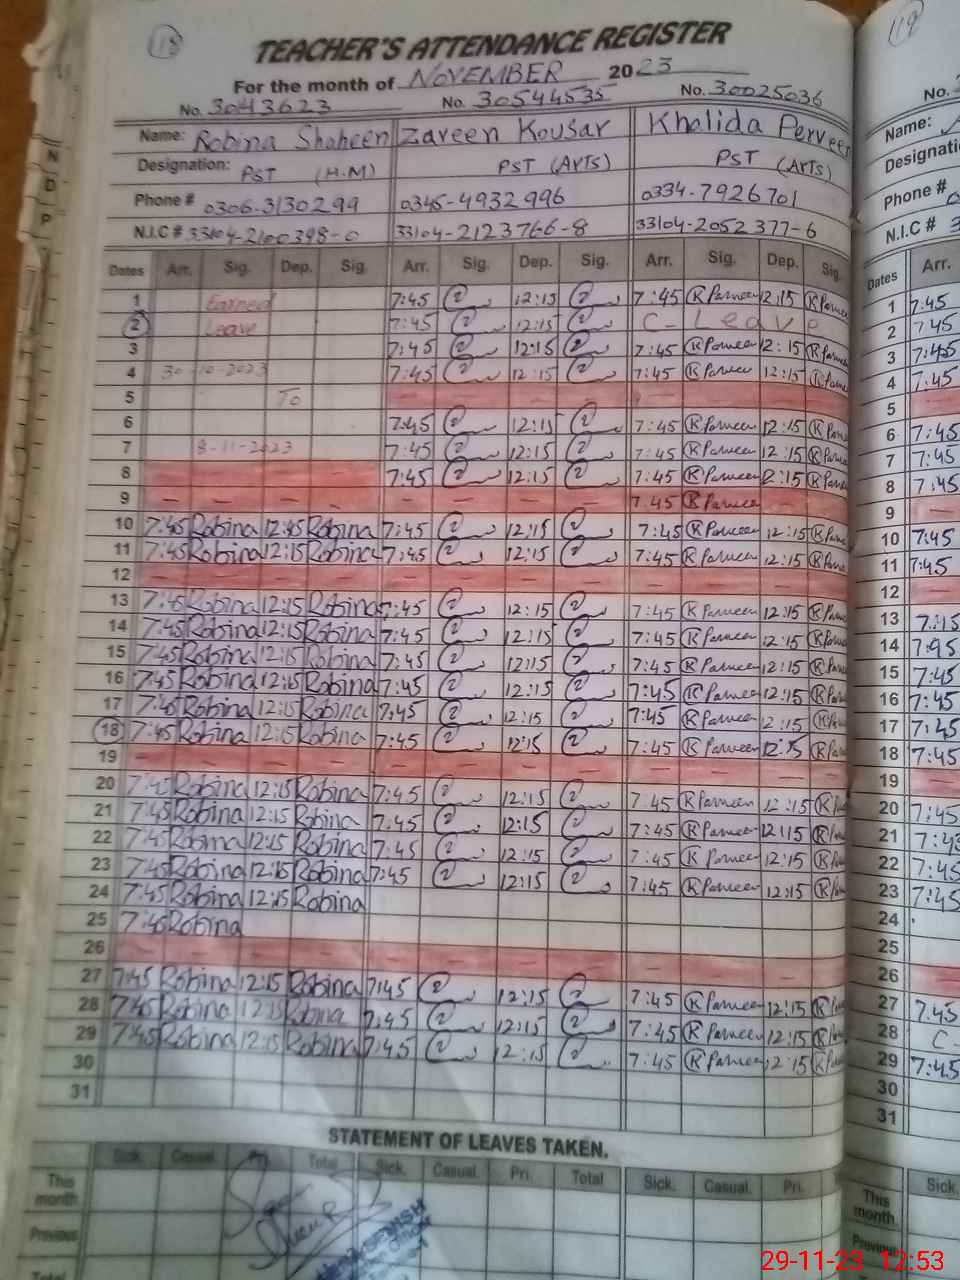 118
TEACHER'S ATTENDANCE REGISTER
For the month of NOVEMBER 2023
No. 3043623 No. 30544535 No. 30025036
Name: Robina Shaheen Zareen Kousar Khalida Perveen
Designation: PST (H.M) PST (Arts) PST (Arts)
Phone # 0306-3130299 0345-4932996 0334-7926701
N.I.C # 33104-2100398-0 33104-2123766-8 33104-2052377-6
Dates Arr. Sig. Dep. Sig. Arr. Sig. Dep. Sig. Arr. Sig. Dep. Sig.
1 Earned 7:45 12:15 7:45 K Parveen 12:15 K Parveen
2 Leave 7:45 12:15 C- Leave
3 7:45 12:15 7:45 K Parveen 12:15 K Parveen
4 30-10-2023 7:45 12:15 7:45 K Parveen 12:15 K Parveen
5 To
6 7:45 12:15 7:45 K Parveen 12:15 K Parveen
7 8-11-2023 7:45 12:15 7:45 K Parveen 12:15 K Parveen
8 7:45 12:15 7:45 K Parveen 12:15 K Parveen
9 7:45 K Parveen
10 7:45 Robina 12:45 Robina 7:45 12:15 7:45 K Parveen 12:15 K Parveen
11 7:45 Robina 12:15 Robina 7:45 12:15 7:45 K Parveen 12:15 K Parveen
12
13 7:45 Robina 12:15 Robina 7:45 12:15 7:45 K Parveen 12:15 K Parveen
14 7:45 Robina 12:15 Robina 7:45 12:15 7:45 K Parveen 12:15 K Parveen
15 7:45 Robina 12:15 Robina 7:45 12:15 7:45 K Parveen 12:15 K Parveen
16 7:45 Robina 12:15 Robina 7:45 12:15 7:45 K Parveen 12:15 K Parveen
17 7:45 Robina 12:15 Robina 7:45 12:15 7:45 K Parveen 12:15 K Parveen
18 7:45 Robina 12:15 Robina 7:45 12:15 7:45 K Parveen 12:15 K Parveen
19
20 7:45 Robina 12:15 Robina 7:45 12:15 7:45 K Parveen 12:15 K Parveen
21 7:45 Robina 12:15 Robina 7:45 12:15 7:45 K Parveen 12:15 K Parveen
22 7:45 Robina 12:15 Robina 7:45 12:15 7:45 K Parveen 12:15 K Parveen
23 7:45 Robina 12:15 Robina 7:45 12:15 7:45 K Parveen 12:15 K Parveen
24 7:45 Robina 12:15 Robina
25 7:45 Robina
26
27 7:45 Robina 12:15 Robina 7:45 12:15 7:45 K Parveen 12:15 K Parveen
28 7:45 Robina 12:15 Robina 7:45 12:15 7:45 K Parveen 12:15 K Parveen
29 7:45 Robina 12:15 Robina 7:45 12:15 7:45 K Parveen 12:15 K Parveen
30
31
STATEMENT OF LEAVES TAKEN.
Sick. Casual. Pri. Total Sick. Casual. Pri. Total Sick. Casual. Pri.
This month
Previous
Total
119
No.
Name:
Designati
Phone #
N.I.C # 3
Dates Arr.
1 7:45
2 7:45
3 7:45
4 7:45
5
6 7:45
7 7:45
8 7:45
9
10 7:45
11 7:45
12
13 7:15
14 7:45
15 7:45
16 7:45
17 7:45
18 7:45
19
20 7:45
21 7:45
22 7:45
23 7:45
24
25
26
27 7:45
28 C-
29 7:45
30
31
Sick.
This month
Previous
N
D
P
29-11-23 12:53